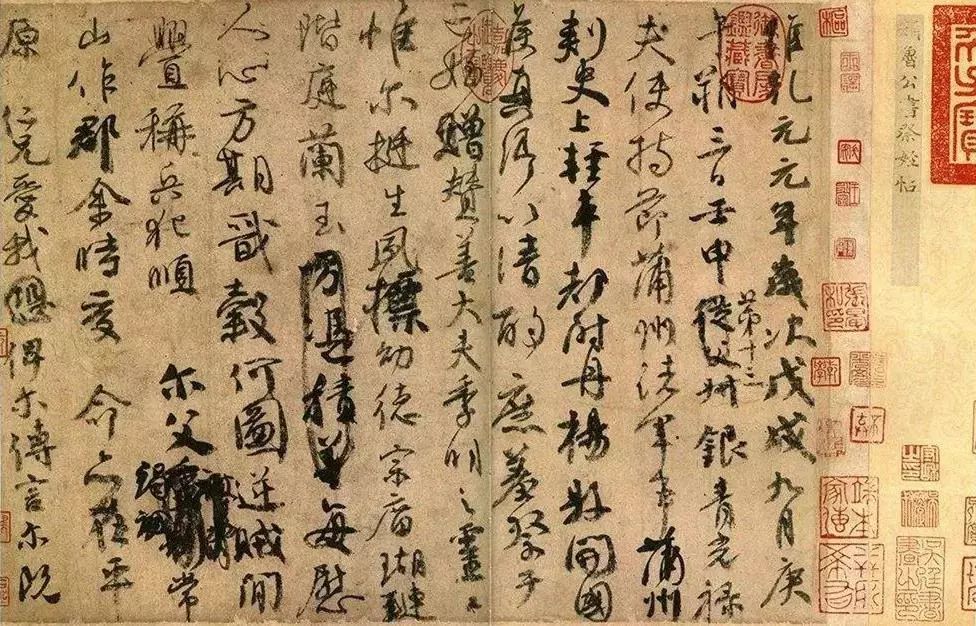 顏魯公書祭姪帖
維乾元元年歲次戊戌九月庚
午朔三日壬申第十三從父叔銀青光祿
夫使持節蒲州諸軍事蒲州
刺史上輕車都尉丹楊縣開國
侯真卿以清酌庶羞祭于
亡姪贈贊善大夫季明之靈曰
惟爾挺生夙標幼德宗廟瑚璉
階庭蘭玉方憑積善每慰
人心方期戩穀何圖逆賊閒
釁稱兵犯順爾父竭誠常
山作郡余時受命亦在平
原仁兄愛我恐俾爾傳言爾既